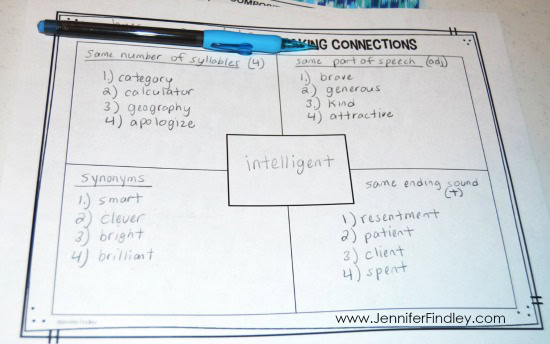 KING CONNECTIONS
same number of syllables (4)
1) category
2) calculator
3) geography
4) apologize
same part of speech (adj)
1) brave
2) generous
3) kind
4) attractive
intelligent
synonyms
1) smart
2) clever
3) bright
4) brilliant
same ending sound
(t)
1) resentment
2) patient
3) client
4) spent
www.JenniferFindley.com